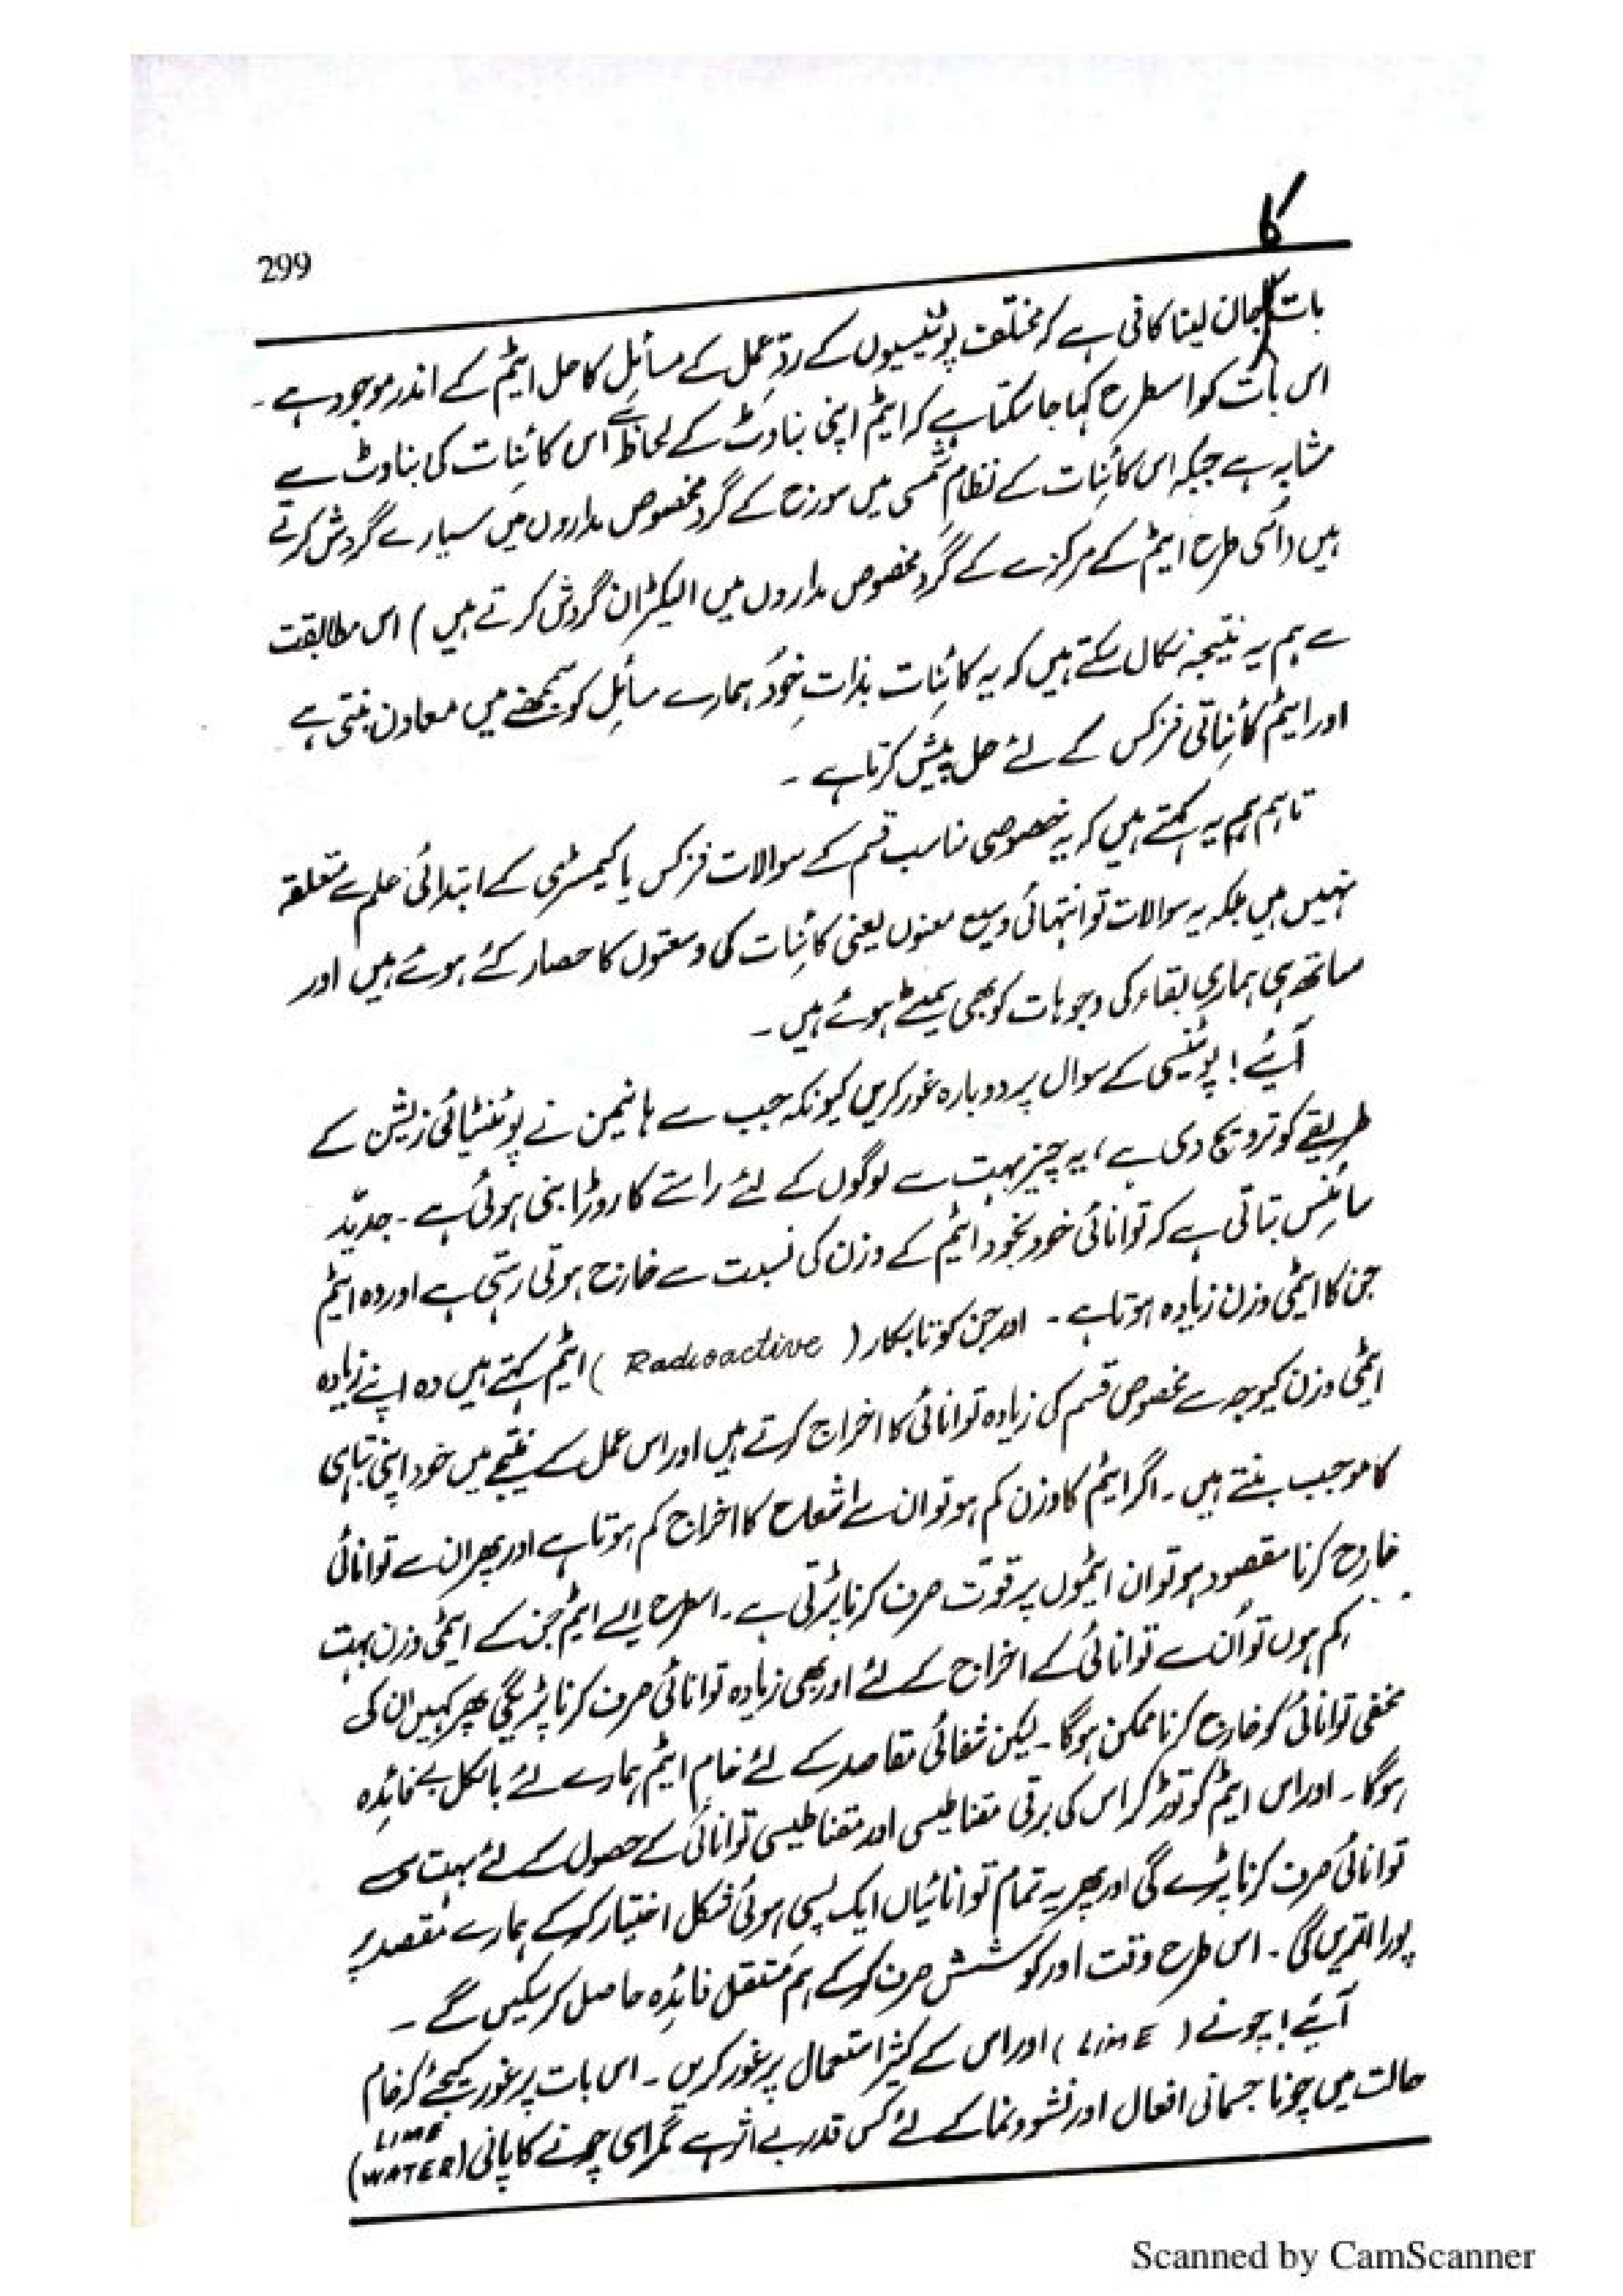 299
کا
بات جان لینا کافی ہے کہ مختلف پوٹینسیوں کے ردِّ عمل کے مسائل کا حل ایٹم کے اندر موجود ہے ۔
اس بات کو اسطرح کہا جا سکتا ہے کہ ایٹم اپنی بناوٹ کے لحاظ سے اس کائنات کی بناوٹ سے
مشابہ ہے جبکہ اس کائنات کے نظام شمسی میں سورج کے گرد مخصوص مداروں میں سیارے گردش کرتے
ہیں (اسی طرح ایٹم کے مرکزے کے گرد مخصوص مداروں میں الیکٹران گردش کرتے ہیں) اس مطابقت
سے ہم یہ نتیجہ نکال سکتے ہیں کہ یہ کائنات بذاتِ خود ہمارے مسائل کو سمجھنے میں معاون بنتی ہے
اور ایٹم کائناتی فزکس کے لئے حل پیش کرتا ہے ۔
تاہم ہم یہ کہتے ہیں کہ یہ خصوصی مناسب قسم کے سوالات فزکس یا کیمسٹری کے ابتدائی علم سے متعلقہ
نہیں ہیں بلکہ یہ سوالات تو انتہائی وسیع معنوں یعنی کائنات کی وسعتوں کا حصار کئے ہوئے ہیں اور
ساتھ ہی ہماری بقاء کی وجوہات کو بھی سمیٹے ہوئے ہیں ۔
آیئے ! پوٹینسی کے سوال پر دوبارہ غور کریں کیونکہ جب سے ہانیمن نے پوٹنٹائی زیشن کے
طریقے کو ترویج دی ہے ، یہ چیز بہت سے لوگوں کے لئے راستے کا روڑا بنی ہوئی ہے ۔ جدید
سائنس بتاتی ہے کہ توانائی خود بخود ایٹم کے وزن کی نسبت سے خارج ہوتی رہتی ہے اور وہ ایٹم
جن کا ایٹمی وزن زیادہ ہوتا ہے ۔ اور جن کو تابکار ( Radioactive ) ایٹم کہتے ہیں وہ اپنے زیادہ
ایٹمی وزن کیوجہ سے مخصوص قسم کی زیادہ توانائی کا اخراج کرتے ہیں اور اس عمل کے نتیجے میں خود اپنی تباہی
کا موجب بنتے ہیں ۔ اگر ایٹم کا وزن کم ہو تو ان سے اشعاع کا اخراج کم ہوتا ہے اور پھر ان سے توانائی
خارج کرنا مقصود ہو تو ان ایٹموں پر قوت صرف کرنا پڑتی ہے ۔ اسطرح ایسے ایٹم جن کے ایٹمی وزن بہت
کم ہوں تو اُن سے توانائی کے اخراج کے لئے اور بھی زیادہ توانائی صرف کرنا پڑیگی پھر کہیں ان کی
مخفی توانائی کو خارج کرنا ممکن ہوگا ۔ لیکن شفائی مقاصد کے لئے خام ایٹم ہمارے لئے بالکل بے فائدہ
ہوگا ۔ اور اس ایٹم کو توڑ کر اس کی برقی مقناطیسی اور مقناطیسی توانائی کے حصول کے لئے بہت سی
توانائی صرف کرنا پڑے گی اور پھر یہ تمام توانائیاں ایک پسی ہوئی شکل اختیار کر کے ہمارے مقصد پر
پورا اتریں گی ۔ اس طرح وقت اور کوشش صرف کر کے ہم مستقل فائدہ حاصل کر سکیں گے ۔
آیئے ! چونے ( LIME ) اور اس کے کثیر استعمال پر غور کریں ۔ اس بات پر غور کیجئے کہ خام
حالت میں چونا جسمانی افعال اور نشوونما کے لئے کس قدر بے اثر ہے مگر اسی چونے کا پانی (LIME WATER)
Scanned by CamScanner